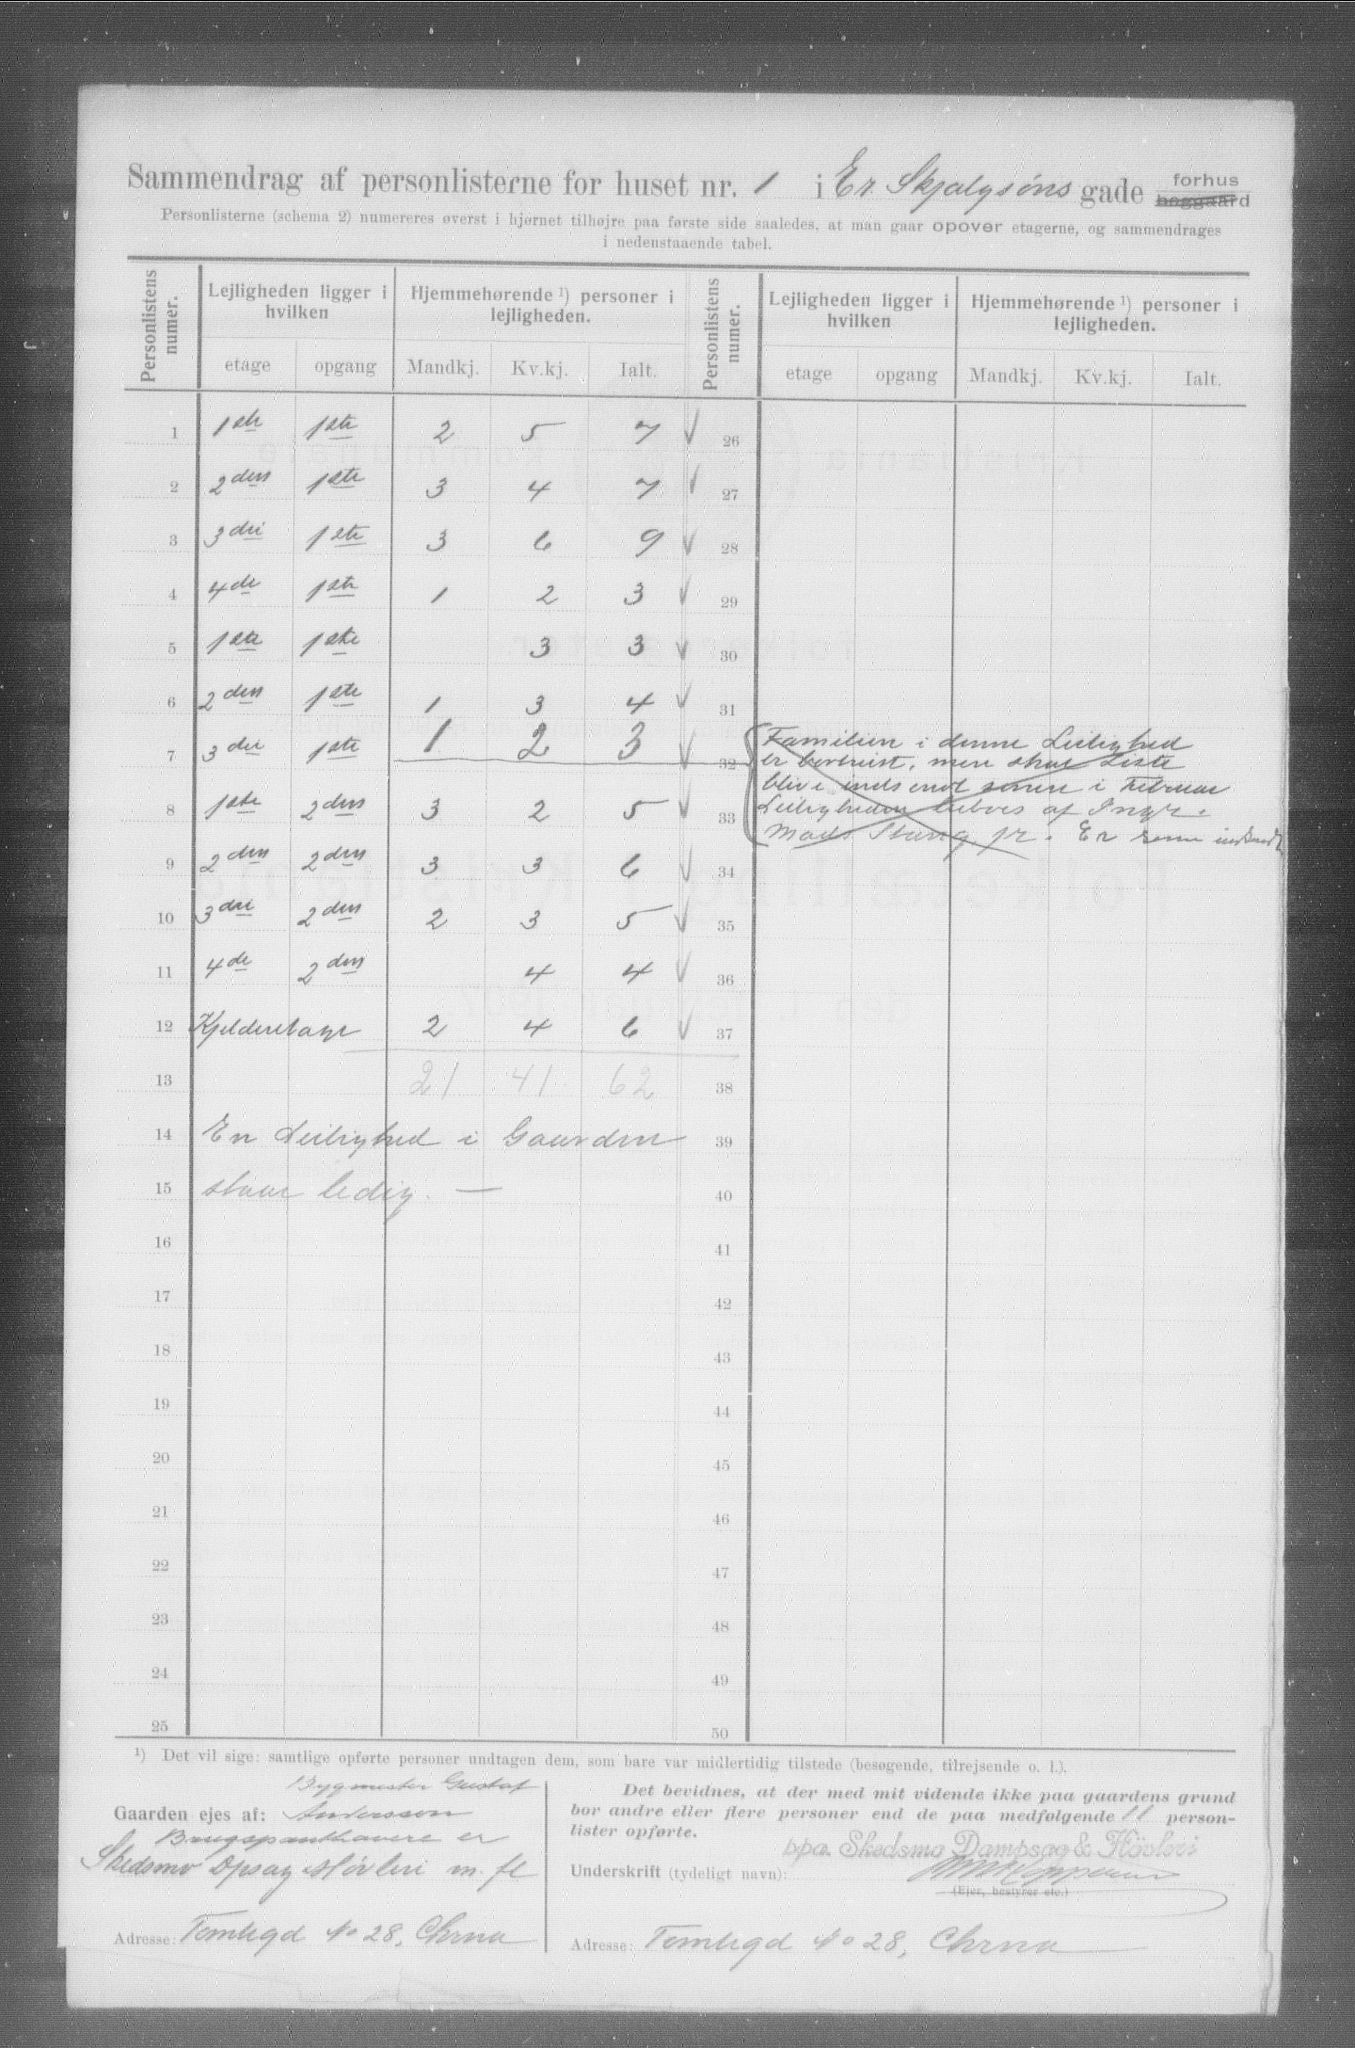 Sammendrag af personlisterne for huset nr. 1 i Er Skjalgsöns gade forhus
baggaard
Personlisterne (schema 2) numereres øverst i hjørnet tilhøjre paa første side saaledes, at man gaar opover etagerne, og sammendrages
i nedenstaaende tabel.
Personlistens numer. Lejligheden ligger i hvilken Hjemmehørende ¹) personer i lejligheden. Personlistens numer. Lejligheden ligger i hvilken Hjemmehørende ¹) personer i lejligheden.
etage opgang Mandkj. Kv.kj. Ialt. etage opgang Mandkj. Kv.kj. Ialt.
1 1ste 1ste 2 5 7 √ 26
2 2den 1ste 3 4 7 √ 27
3 3die 1ste 3 6 9 √ 28
4 4de 1ste 1 2 3 √ 29
5 1ste 1ste 3 3 √ 30
6 2den 1ste 1 3 4 √ 31
7 3die 1ste 1 2 3 √ 32
8 1ste 2den 3 2 5 √ 33
Familien i denne Leilighed
er bortreist, men skal Liste
blive indsendt senere i Februar
Leiligheden beboes af Ingr.
Mads Stang jr. Er senere indsendt
9 2den 2den 3 3 6 √ 34
10 3die 2den 2 3 5 √ 35
11 4de 2den 4 4 √ 36
12 Kjelderetage 2 4 6 √ 37
13 21 41 62 38
14 En Leilighed i Gaarden 39
15 staar ledig. — 40
16 41
17 42
18 43
19 44
20 45
21 46
22 47
23 48
24 49
25 50
¹) Det vil sige: samtlige opførte personer undtagen dem, som bare var midlertidig tilstede (besøgende, tilrejsende o. l.).
Bygmester Gustaf
Gaarden ejes af: Andersson
Brugspanthavere er
Skedsmo Dpsag & Høvleri m. fl
Adresse: Tomtegd No 28, Chrna
Det bevidnes, at der med mit vidende ikke paa gaardens grund
bor andre eller flere personer end de paa medfølgende 11 person-
lister opførte.
ppa. Skedsmo Dampsag & Hövleri
Underskrift (tydeligt navn):
(Ejer, bestyrer etc.)
Adresse: Tomtegd No 28, Chrna